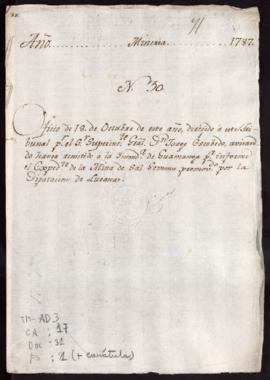 Año Mineria 1787.
Nº 30
Oficio de 18 de Octubre de este año, dirigido a este Tri-
bunal pr. el Sr. Superinte. Gral. Dn. Jorge Escobedo, avisan-
do haver remitido a la Intenda. de Guamanga pa. informe
el Expedte. de la Mina de Sal Gemma promovdo. por la
Diputacion de Lucanas.
TM-AD3
CA : 17
DOC : 31
FS : 1 (+ carátula)